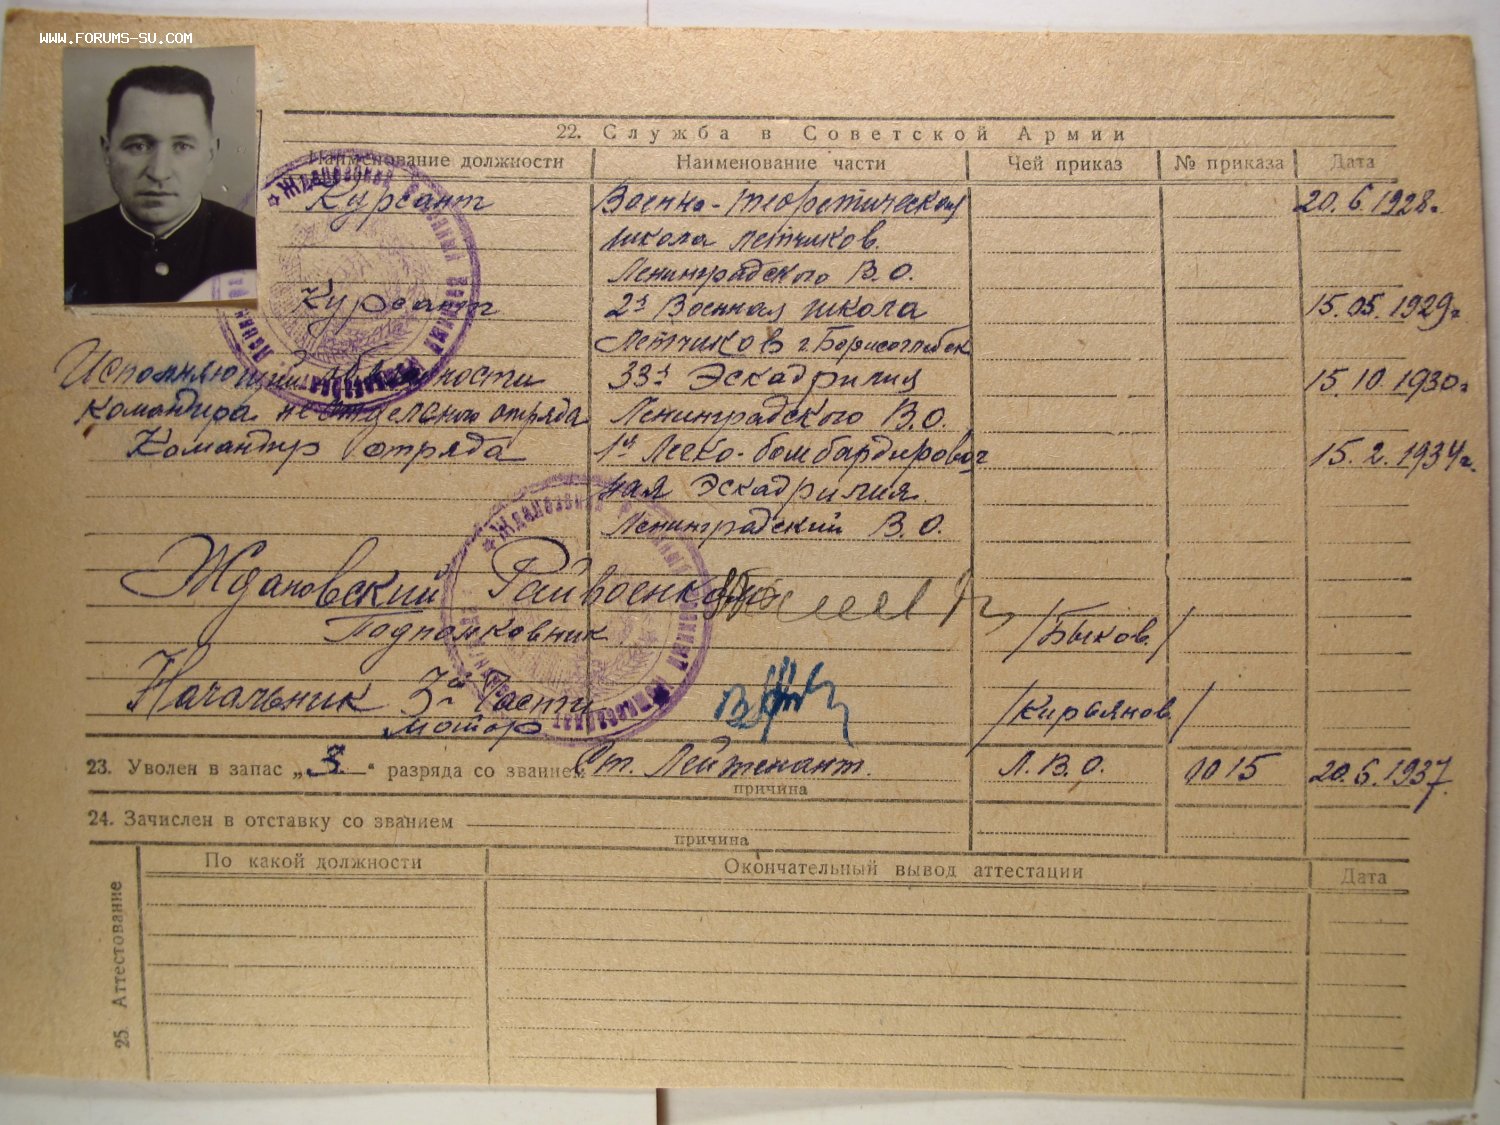 WWW.FORUMS-SU.COM
22. Служба в Советской Армии
Наименование должности Наименование части Чей приказ № приказа Дата
Курсант Военно-теоретическая 20.6.1928г.
школа летчиков
Ленинградского В.О.
Курсант 2я Военная школа 15.05.1929г
Летчиков г. Борисоглебск
Исполняющий обязаности 33я Эскадрилия 15.10.1930г
командира неотдельного отряда Ленинградского В.О.
Командир отряда 1я Легко-бомбардировоч 15.2.1934г.
ная Эскадрилия
Ленинградский В.О.
Ждановский Райвоенком
Подполковник /Быков/
Начальник 3й Части /Кирьянов/
майор
23. Уволен в запас „3“ разряда со званием Ст. Лейтенант. Л.В.О. 1015 20.6.1937.
причина
24. Зачислен в отставку со званием
причина
25 Аттестование
По какой должности Окончательный вывод аттестации Дата